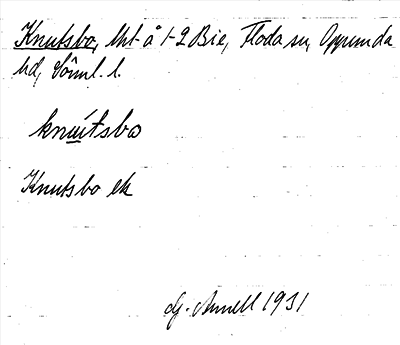 Knutsbo, lht å 1-2 Bie, Floda sn, Oppunda
hd, Södml. l.
knutsbo
Knutsbo ek
G. Arnell 1931